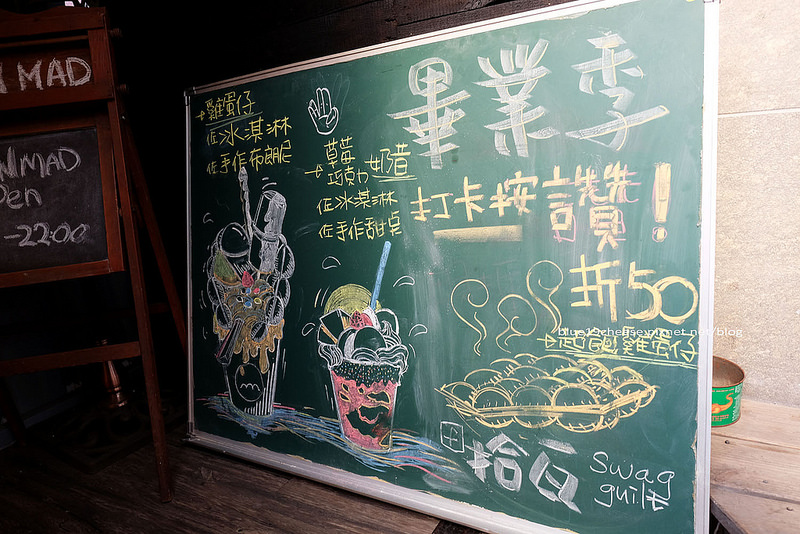 MAD
NMAD
pen
-22:00
雞蛋仔
佐冰淇淋
佐手作布朗尼
草莓
巧克力 奶昔
佐冰淇淋
佐手作甜点
畢業季
打卡按讚!
折50
起酥雞蛋仔
拾百
Swag
blue19cheese.pixnet.net/blog